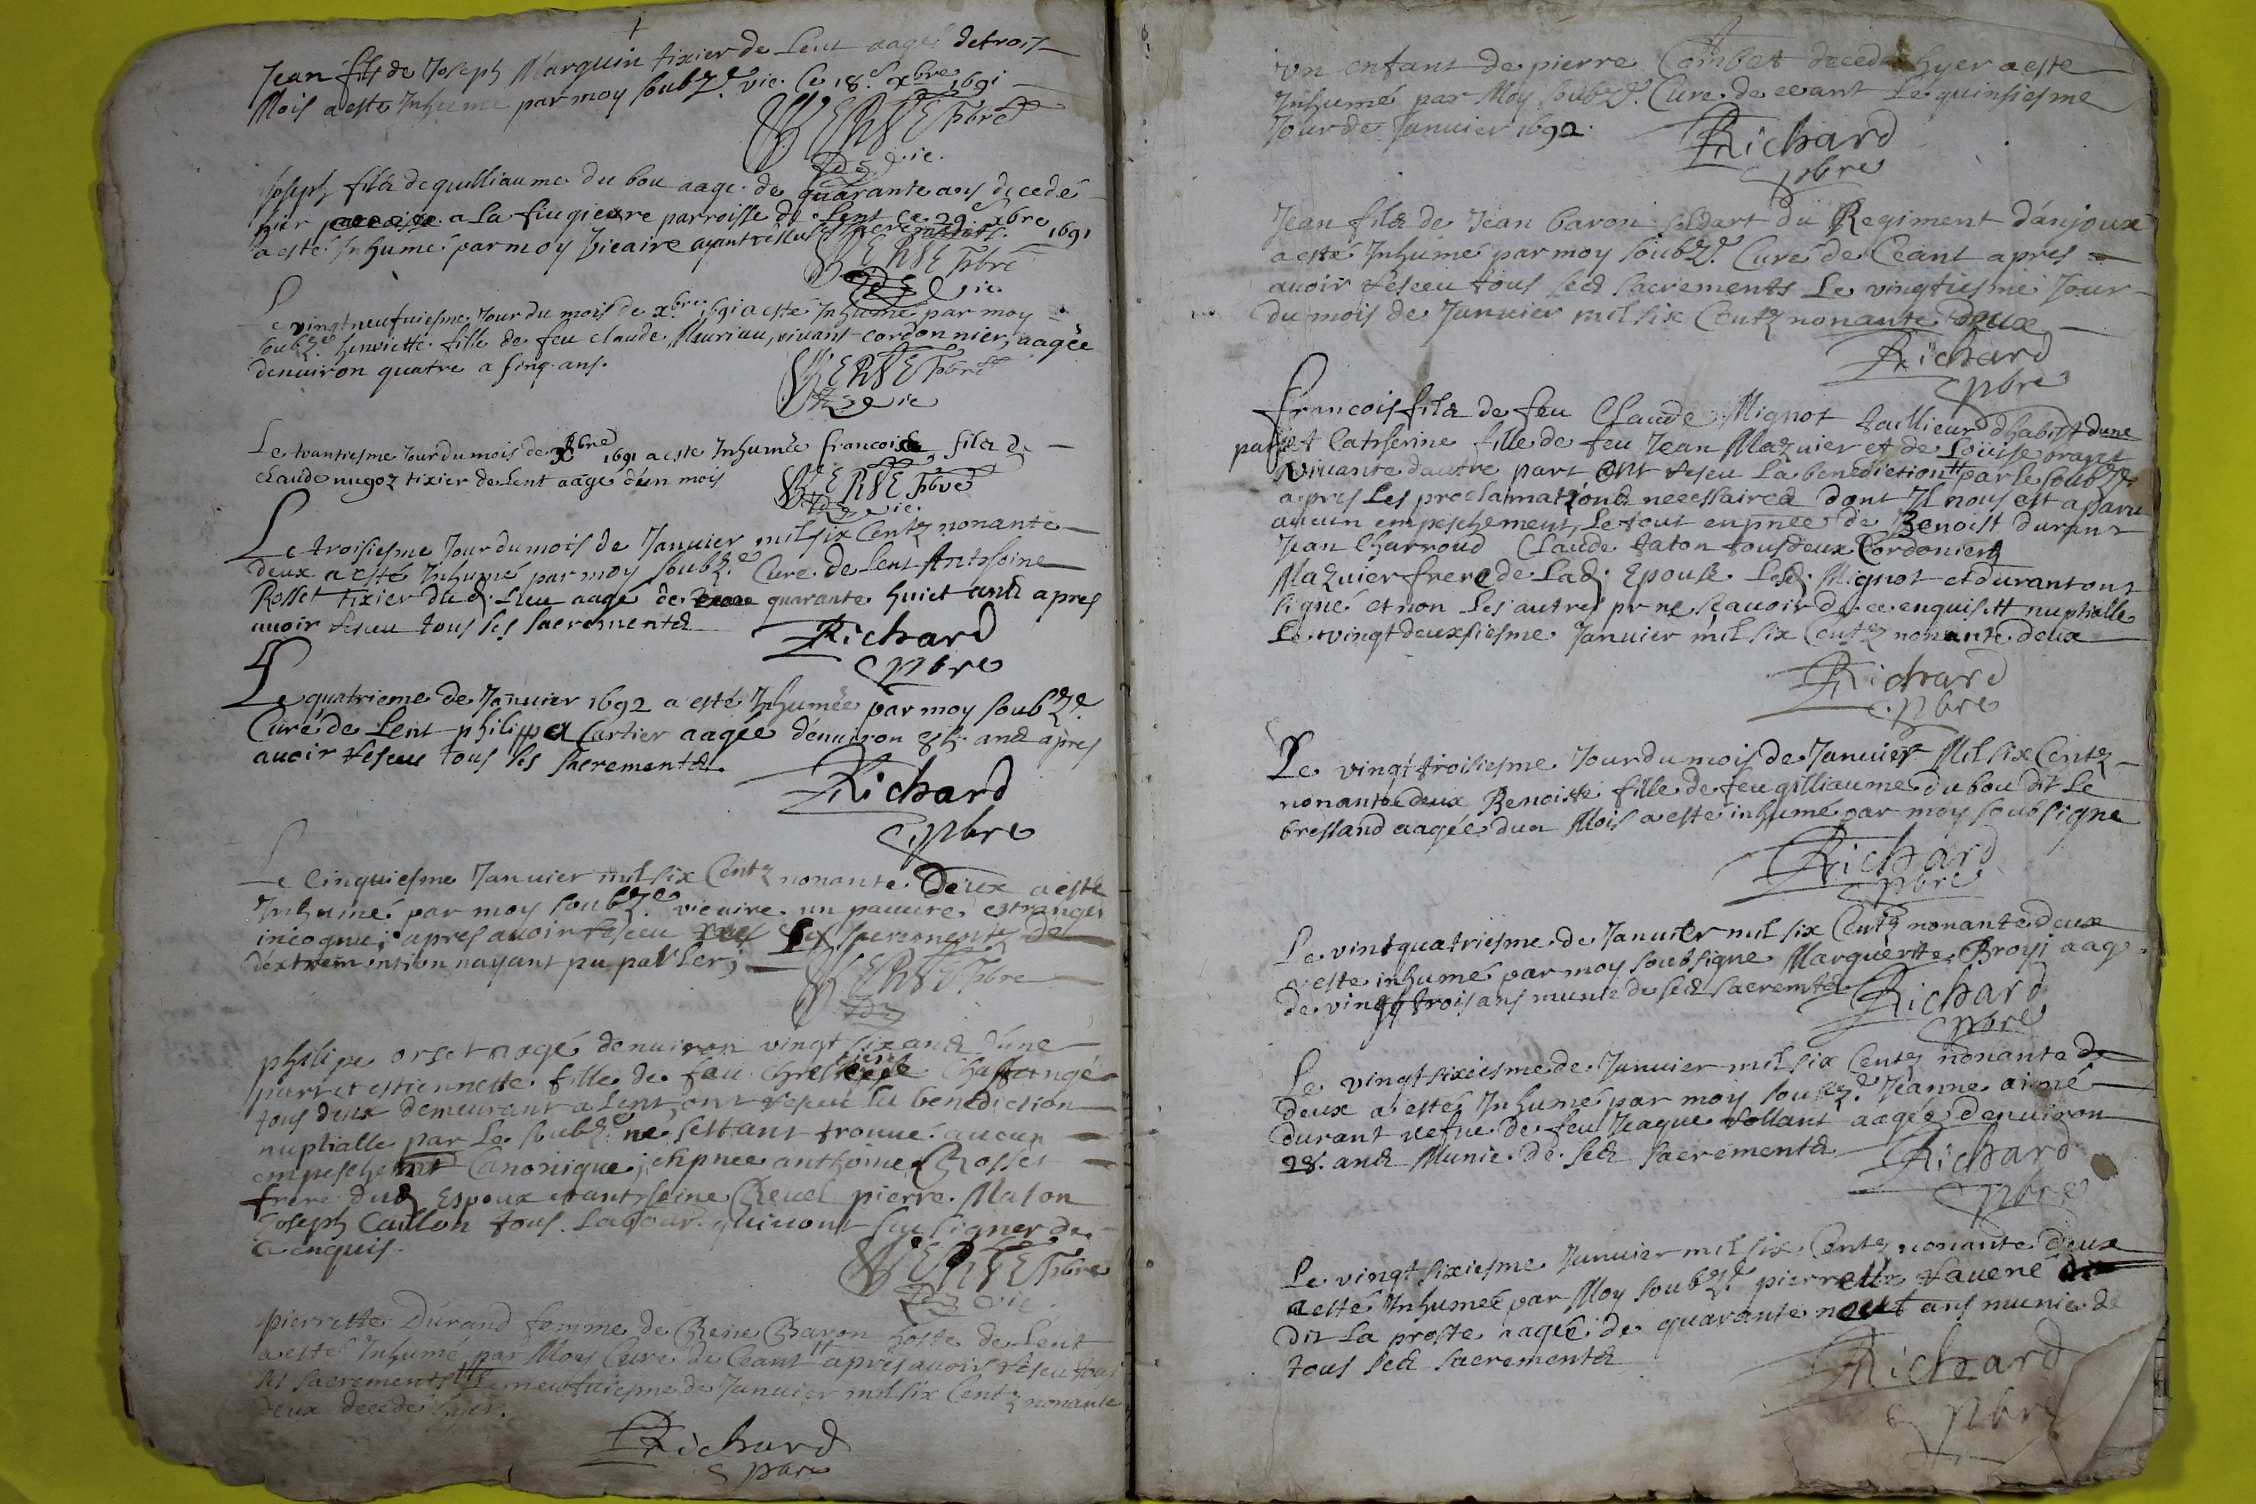 Jean fils de Joseph Marquin tixier de Lent aagé de trois
Mois a esté Inhumé par moy soubz.e vic. ce 18.e xbre 1691
VERNE pbre
vic.
Joseph fils de gulliaume du bou aagé de quarante ans decedé
hier a La fiugieure parroisse de Lent ce 29.e xbre 1691
a esté Inhumé par moy Vicaire ayant receu
VERNE pbre
vic.
Le vingtneufuiesme Jour du mois de xbre 1691 a esté Inhumé par moy
soubz.e henriette fille de feu claude Meuriau, viuant cordonnier, aagée
denuiron quatre a sinq ans.
VERNE pbre
vic
Le trantiesme Jour du mois de xbre 1691 a esté Inhumée francoise fila de
claude nugoz tixier de Lent aagé dun mois
VERNE pbre
vic.
Le troisiesme Jour du mois de Januier mil six Centz nonante
deux a esté Inhumé par moy soubz.e Curé de Lent Anthoine
Rosset tixier dud. Lieu aagé de quarante huict ans apres
auoir reseu tous ses sacrements
Richard
pbre
Le quatrieme de Januier 1692 a esté Inhumée par moy soubz.e
Curé de Lent philippa Cartier aagée dénuiron ans apres
auoir reseu tous ses sacrements.
Richard
pbre
Le Cinquiesme Januier mil six Centz nonante Deux a esté
Inhumé par moy soubz.e vicaire un pauure estranger
incognu; apres auoir reseu Les sacrements de
dextrem ontion nayant pu parler;
VERNE pbre
philipe orset aagé denuiron vingt six ans d'une
part et estiennette fille de feu Chaffange
tous deux demeurant a Lent, ont reseu la benediction
nuptialle par Le soubz.e ne sestant trouué aucun
empeschemt Canonique; en pnce anthoine Rosset
frere dud. Espoux et anthoine Reuel pierre Maton
Joseph Caillon tous Labour. qui nont sceu signer de
ce enquis.
VERNE pbre
vic.
pierrette Durand femme de Rene Baron hoste de Lent
a esté Inhumé par Moy Curé de Ceant apres auoir reseu tous
les sacrements Le neufuiesme de Januier mil six Centz nonante
deux decedé hyer.
Richard
pbre
Un enfant de pierre Combet decedé hyer a esté
Inhumé par Moy soubz.e Curé de ceant Le quinsiesme
Jour de Januier 1692.
Richard
pbre
Jean fils de Jean baron soldart du Regiment d'anjoux
a esté Inhumé par moy soubz.e Curé de Ceant apres
auoir reseu tous ses sacrements Le vingtiesme Jour
du mois de Januier mil six Centz nonante deux
Richard
pbre
francois fils de feu Claude Mignot taillieur dhabist d'une
part et Catherine fille de feu Jean Mazuier et de Louise
viuante dautre part ont reseu La benediction par le soubz.e
apres Les proclamations necessaires dont Il nous est aparu
aucun empeschement, Le tout en pnce de Benoist durant
Jean Charroud Claude taton tous deux Cordoniers
Mazuier frere de Lad. Epouse Led. Mignot et durant ont
signé et non Les autres pr ne scauoir de ce enquis nuptialle
Le vingt deuxsiesme Januier mil six Centz nonante deux
Richard
pbre
Le vingt troisiesme Jour du mois de Januier Mil six Centz
nonante deux Benoiste fille de feu gulliaume du bou dit Le
bressand aagée dun Mois a esté inhumé par moy soubsigne
Richard
pbre
Le vintquatriesme de Januier mil six Centz nonante deux
a esté inhumé par moy soubsigne Marguerite Broyi aag
de vingt trois ans munie de ses sacremts
Richard
pbre
Le vingt sixiesme de Januier mil six Centz nonante de
deux a esté Inhumé par moy soubz.e Jeanne aimé
durant vefue de feu Jeaque vollant aagée denuiron
28. ans Munie de ses sacrements
Richard
pbre
Le vingt sixiesme Januier mil six Centz nonante deux
a esté Inhumée par Moy soubz.e pierrette tauene
dit La proste aagée de quarante neuf ans munie de
tous ses sacrements
Richard
pbre